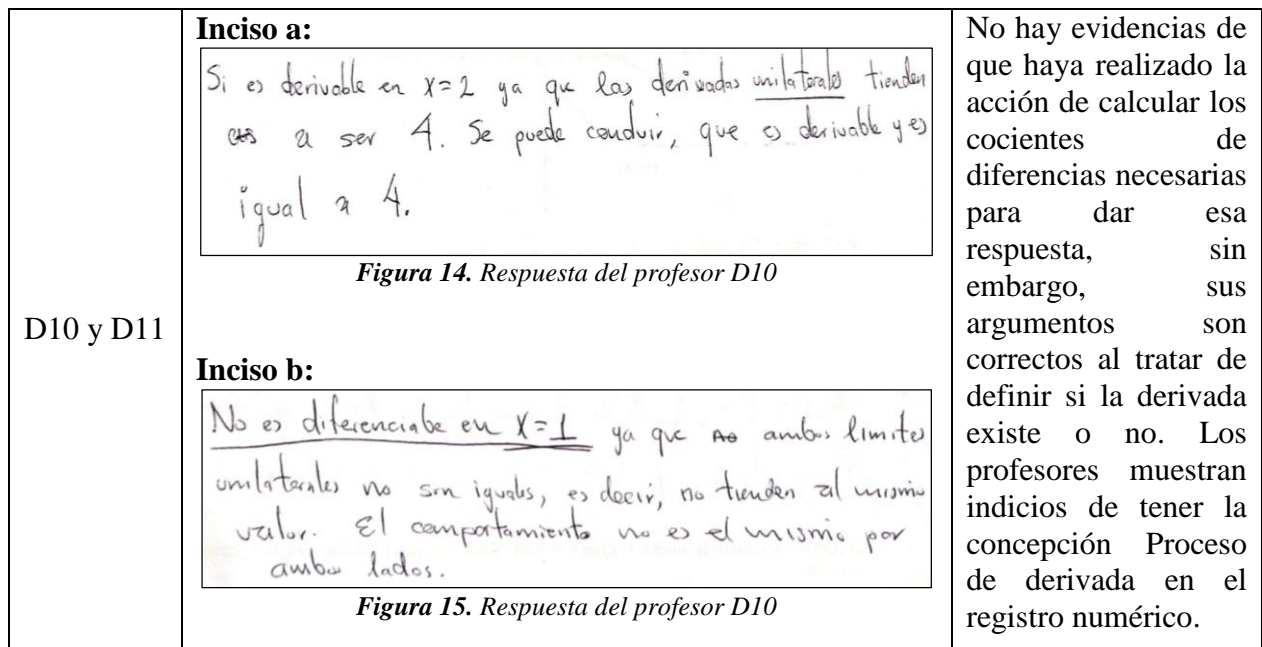 D10 y D11
Inciso a:
Si es derivable en x=2 ya que las derivadas unilaterales tienden
a ser 4. Se puede concluir, que es derivable y es
igual a 4.
Figura 14. Respuesta del profesor D10
Inciso b:
No es diferenciabe en x=1 ya que ambos limites
unilaterales no son iguales, es decir, no tienden al mismo
valor. El comportamiento no es el mismo por
ambos lados.
Figura 15. Respuesta del profesor D10
No hay evidencias de
que haya realizado la
acción de calcular los
cocientes de
diferencias necesarias
para dar esa
respuesta, sin
embargo, sus
argumentos son
correctos al tratar de
definir si la derivada
existe o no. Los
profesores muestran
indicios de tener la
concepción Proceso
de derivada en el
registro numérico.